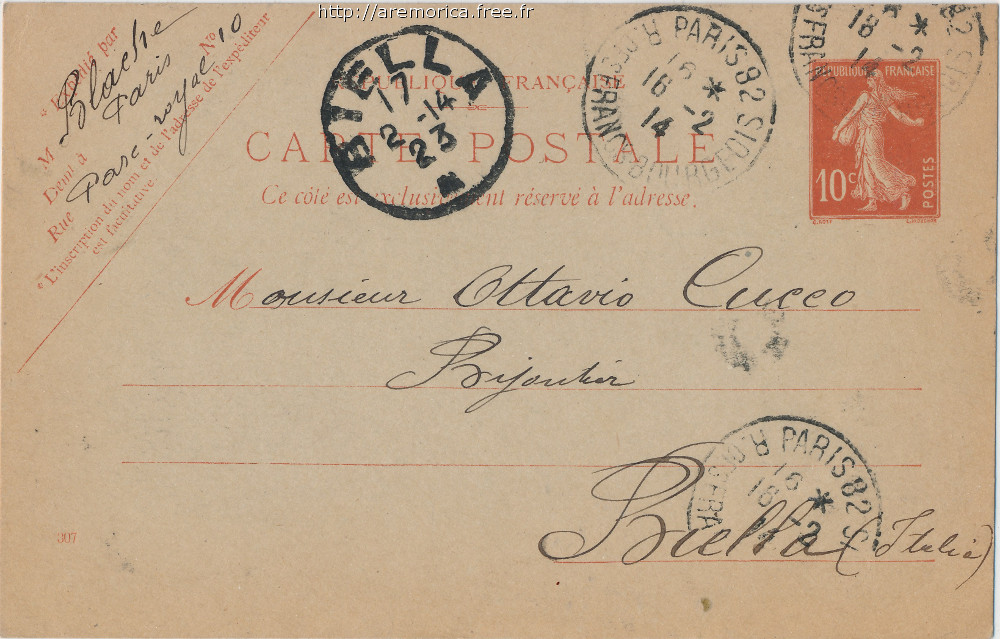 http://aremorica.free.fr
* Expédié par
M Blache
Demt à Paris
Rue Parc-royal No 10
*L'inscription du nom et de l'adresse de l'expéditeur
est facultative
RÉPUBLIQUE FRANÇAISE
CARTE POSTALE
Ce côté est exclusivement réservé à l'adresse.
BIELLA
17 -14
2 23
PARIS 82 R. DES FRANCS BOURGEOIS
16 *
16 -2
14
RÉPUBLIQUE FRANÇAISE
10 c
POSTES
Monsieur Ottavio Cucco
Bijoutier
Biella (Italie)
PARIS 82
16 *
18 -2
307